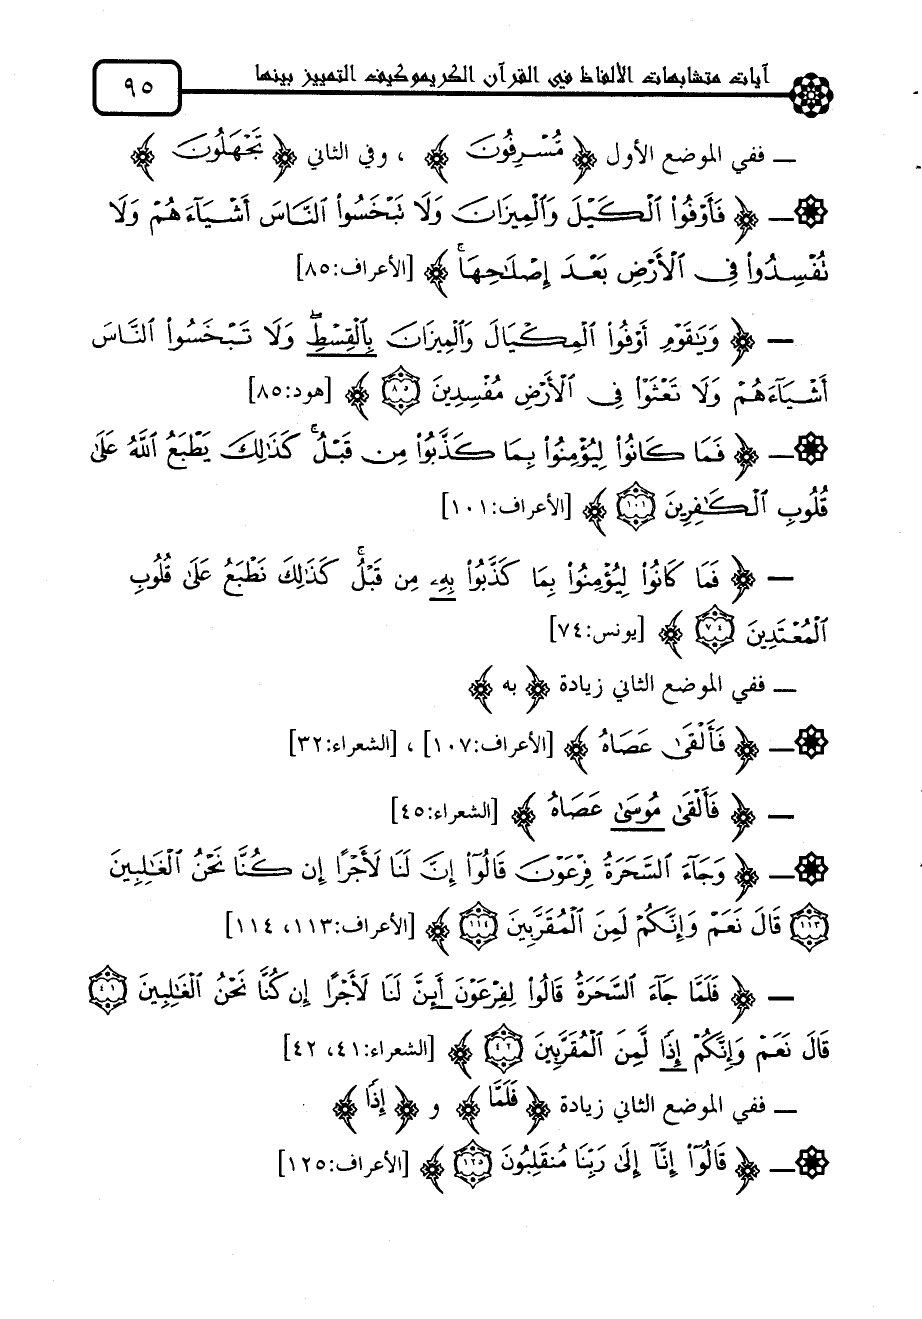 آيات متشابهات الألفاظ في القرآن الكريم وكيف التمييز بينها
٩٥
ــ ففي الموضع الأول ﴿ مُّسْرِفُونَ ﴾ ، وفي الثاني ﴿ تَجْهَلُونَ ﴾
ــ ﴿ فَأَوْفُوا۟ ٱلْكَيْلَ وَٱلْمِيزَانَ وَلَا تَبْخَسُوا۟ ٱلنَّاسَ أَشْيَآءَهُمْ وَلَا
تُفْسِدُوا۟ فِى ٱلْأَرْضِ بَعْدَ إِصْلَـٰحِهَا ۚ ﴾ [الأعراف:٨٥]
ــ ﴿ وَيَـٰقَوْمِ أَوْفُوا۟ ٱلْمِكْيَالَ وَٱلْمِيزَانَ بِٱلْقِسْطِ ۖ وَلَا تَبْخَسُوا۟ ٱلنَّاسَ
أَشْيَآءَهُمْ وَلَا تَعْثَوْا۟ فِى ٱلْأَرْضِ مُفْسِدِينَ ٨٥ ﴾ [هود:٨٥]
ــ ﴿ فَمَا كَانُوا۟ لِيُؤْمِنُوا۟ بِمَا كَذَّبُوا۟ مِن قَبْلُ ۚ كَذَٰلِكَ يَطْبَعُ ٱللَّهُ عَلَىٰ
قُلُوبِ ٱلْكَـٰفِرِينَ ١٠١ ﴾ [الأعراف:١٠١]
ــ ﴿ فَمَا كَانُوا۟ لِيُؤْمِنُوا۟ بِمَا كَذَّبُوا۟ بِهِۦ مِن قَبْلُ ۚ كَذَٰلِكَ نَطْبَعُ عَلَىٰ قُلُوبِ
ٱلْمُعْتَدِينَ ٧٤ ﴾ [يونس:٧٤]
ــ ففي الموضع الثاني زيادة ﴿ به ﴾
ــ ﴿ فَأَلْقَىٰ عَصَاهُ ﴾ [الأعراف:١٠٧] ، [الشعراء:٣٢]
ــ ﴿ فَأَلْقَىٰ مُوسَىٰ عَصَاهُ ﴾ [الشعراء:٤٥]
ــ ﴿ وَجَآءَ ٱلسَّحَرَةُ فِرْعَوْنَ قَالُوٓا۟ إِنَّ لَنَا لَأَجْرًا إِن كُنَّا نَحْنُ ٱلْغَـٰلِبِينَ
١١٣ قَالَ نَعَمْ وَإِنَّكُمْ لَمِنَ ٱلْمُقَرَّبِينَ ١١٤ ﴾ [الأعراف:١١٣، ١١٤]
ــ ﴿ فَلَمَّا جَآءَ ٱلسَّحَرَةُ قَالُوا۟ لِفِرْعَوْنَ أَئِنَّ لَنَا لَأَجْرًا إِن كُنَّا نَحْنُ ٱلْغَـٰلِبِينَ ٤١
قَالَ نَعَمْ وَإِنَّكُمْ إِذًا لَّمِنَ ٱلْمُقَرَّبِينَ ٤٢ ﴾ [الشعراء:٤١، ٤٢]
ــ ففي الموضع الثاني زيادة ﴿ فَلَمَّا ﴾ و ﴿ إِذًا ﴾
ــ ﴿ قَالُوٓا۟ إِنَّآ إِلَىٰ رَبِّنَا مُنقَلِبُونَ ١٢٥ ﴾ [الأعراف:١٢٥]